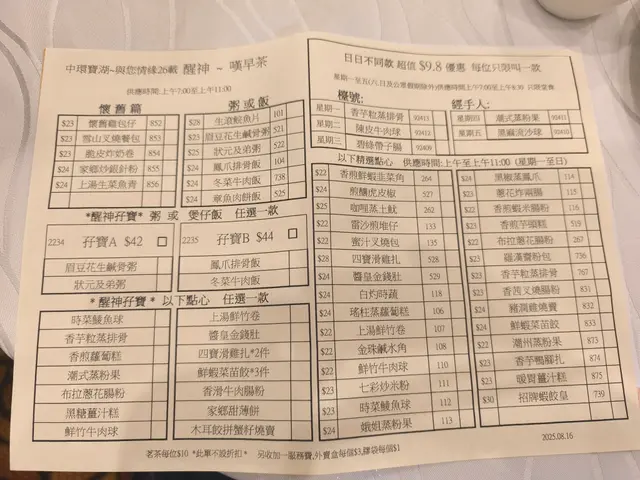 中環寶湖~與您情緣26載 醒神 ~ 嘆早茶
供應時間:上午7:00至上午11:00
懷舊篇
$23 懷舊雞包仔 852
$23 雪山叉燒餐包 853
$23 脆皮炸奶卷 854
$24 家鄉炒銀針粉 855
$24 上湯生菜魚青 856
粥或飯
$28 生滾鯇魚片 101
$23 眉豆花生鹹骨粥 521
$25 狀元及弟粥 522
$24 鳳爪排骨飯 104
$24 冬菜牛肉飯 738
$24 章魚肉餅飯 525
*醒神孖寶* 粥 或 煲仔飯 任選一款
2234 孖寶A $42
眉豆花生鹹骨粥
狀元及弟粥
2235 孖寶B $44
鳳爪排骨飯
冬菜牛肉飯
*醒神孖寶* 以下點心 任選一款
時菜鯪魚球
香芋粒蒸排骨
香煎蘿蔔糕
潮式蒸粉果
布拉蔥花腸粉
黑糖薑汁糕
鮮竹牛肉球
上湯鮮竹卷
醬皇金錢肚
四寶滑雞扎*2件
鮮蝦菜苗餃*3件
香滑牛肉腸粉
家鄉甜薄餅
木耳餃拼蟹籽燒賣
日日不同款 超值 $9.8 優惠 每位只限叫一款
星期一至五(六日及公眾假期除外)供應時間:上午7:00至上午8:30 只限堂食
檯號:
經手人:
星期一 香芋粒蒸排骨 92411
星期二 陳皮牛肉球 92413
星期三 碧綠帶子腸 92409
星期四 潮式蒸粉果 92412
星期五 黑麻流沙球 92410
以下精選點心 供應時間:上午至上午11:00 (星期一至日)
$22 香煎鮮蝦韭菜果 264
$24 煎釀虎皮椒 527
$25 咖喱蒸土魷 262
$22 雷沙煎堆仔 133
$22 蜜汁叉燒包 135
$28 四寶滑雞扎 528
$24 醬皇金錢肚 529
$24 白灼時蔬 118
$24 瑤柱蒸蘿蔔糕 106
$22 上湯鮮竹卷 107
$22 金珠鹹水角 108
$22 鮮竹牛肉球 110
$23 七彩炒米粉 111
$23 時菜鯪魚球 112
$24 娥姐蒸粉果 113
$24 黑椒蒸鳳爪 114
$23 蔥花炸兩腸 115
$22 香煎蝦米腸粉 116
$23 香煎芋頭糕 519
$22 布拉蔥花腸粉 267
$23 羅漢齋粉包 736
$23 香芋粒蒸排骨 767
$23 香茜叉燒腸粉 831
$24 豬潤雞燒賣 832
$24 鮮蝦菜苗餃 833
$22 潮州蒸粉果 873
$24 香芋鴨腳扎 874
$23 暖胃薑汁糕 875
$30 招牌蝦餃皇 739
茗茶每位$10 *此單不設折扣* 另收加一服務費,外賣盒每個$3,膠袋每個$1
2025.08.16